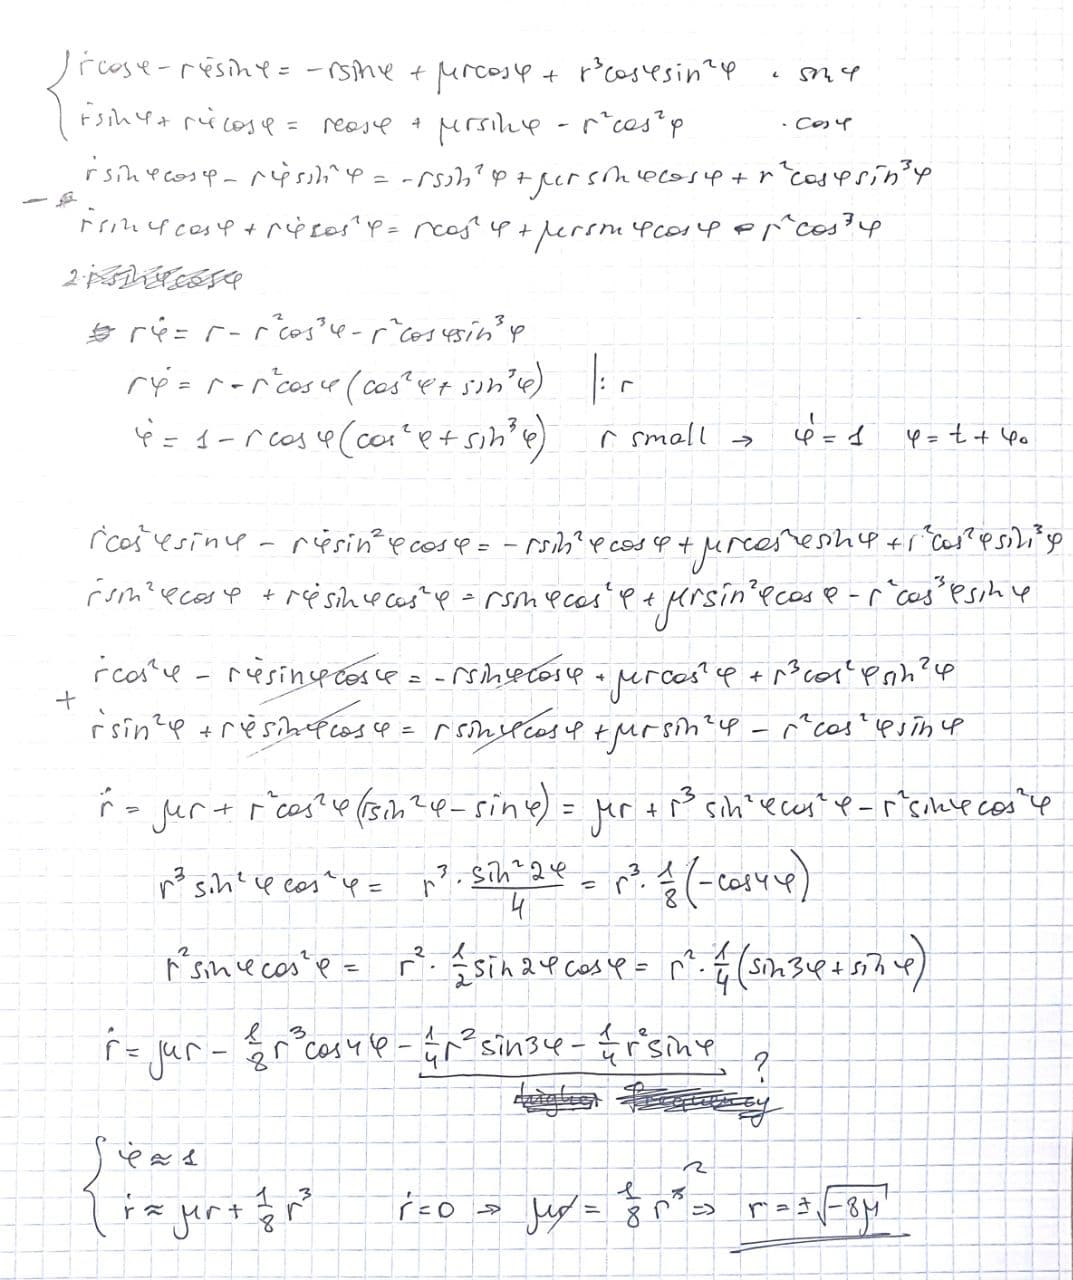 { ṙcosφ - rφ̇sinφ = -rsinφ + μrcosφ + r³cosφsin²φ · sinφ
ṙsinφ + rφ̇cosφ = rcosφ + μrsinφ - r²cos²φ · cosφ
ṙsinφcosφ - rφ̇sin²φ = -rsin²φ + μrsinφcosφ + r²cosφsin³φ
- ṙsinφcosφ + rφ̇cos²φ = rcos²φ + μrsinφcosφ - r²cos³φ
2
rφ̇ = r - r²cos³φ - r²cosφsin³φ
rφ̇ = r - r²cosφ(cos²φ + sin³φ) |: r
φ̇ = 1 - rcosφ(cos²φ + sin³φ) r small → φ̇ = 1 φ = t + φ₀
ṙcos²φsinφ - rφ̇sin²φcosφ = -rsin²φcosφ + μrcos²φsinφ + r²cos²φsin³φ
ṙsin²φcosφ + rφ̇sinφcos²φ = rsinφcos²φ + μrsin²φcosφ - r²cos³φsinφ
ṙcos²φ - rφ̇sinφcosφ = -rsinφcosφ + μrcos²φ + r³cos²φsin²φ
+ ṙsin²φ + rφ̇sinφcosφ = rsinφcosφ + μrsin²φ - r²cos²φsinφ
ṙ = μr + r²cos²φ(rsin²φ - sinφ) = μr + r³sin²φcos²φ - r²sinφcos²φ
r³sin²φcos²φ = r³ · sin²2φ/4 = r³ · 1/8(-cos4φ)
r²sinφcos²φ = r² · 1/2 sin2φcosφ = r² · 1/4(sin3φ + sinφ)
ṙ = μr - 1/8 r³cos4φ - 1/4 r²sin3φ - 1/4 r²sinφ ?
{ φ̇ ≈ 1
ṙ ≈ μr + 1/8 r³ ṙ = 0 ⇒ μr = 1/8 r² ⇒ r = ±√-8μ